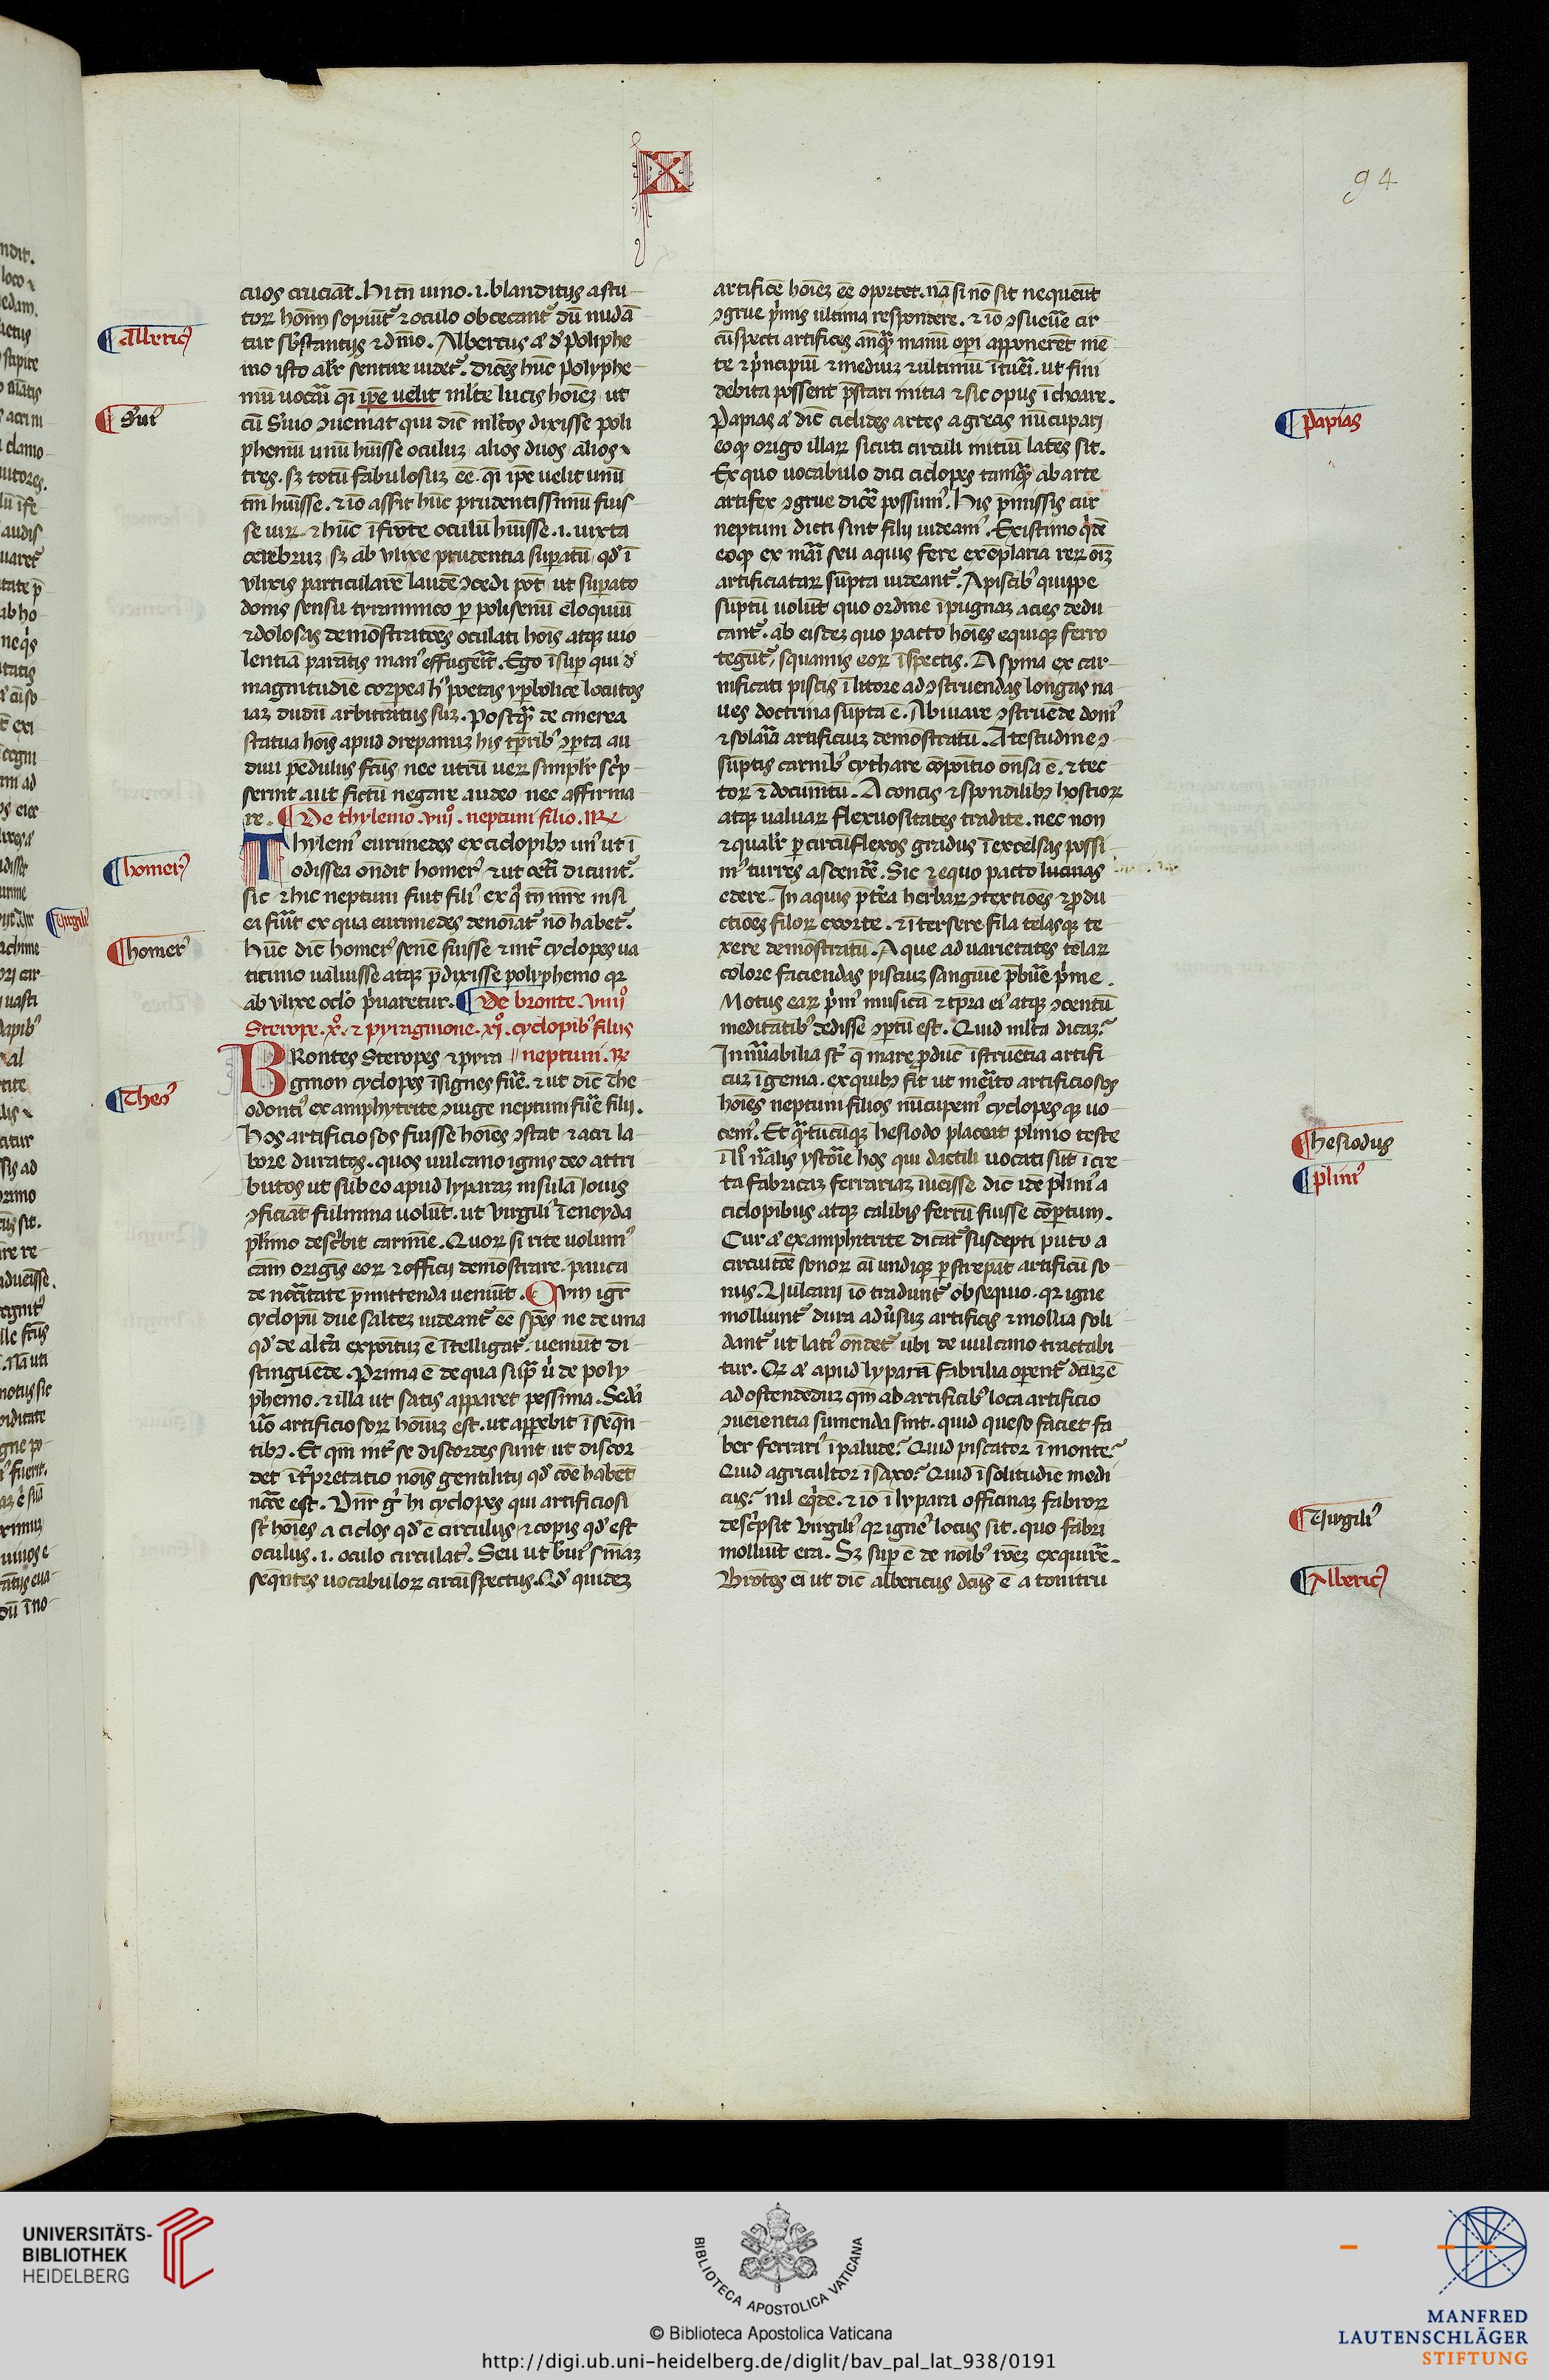 X
94
cuos cruciāt. Hi tn̄ uino .i. blanditijs astu
tor hom̄ sopiūt᷑ ⁊ oculo obcecant᷑ dū nudā
tur sb̄stantijs ⁊ dn̄io. Albertus aūt d̄ poliphe
mo isto alr̄ sentire uidet᷑. dicēs hūc polyphe
mū uocāi qi ip̄e uelit ml̄te lucis hoīez ut
cū Suio ꝯueniat qui dic̄ ml̄tos dixisse poli
phemū unū h̄uisse oculuz alios duos alios
tres. sz totū fabulosuz eē. qi ip̄e uelit unū
tm̄ h̄uisse. ⁊ iō asserit hūc prudentissimū fuis
se uir ⁊ hūc ī fronte oculū h̄uisse .i. iuxta
cerebruz sz ab vlixe prudentia supatū qd̓ ī
vlixis particularē laudē ꝯcedi pōt ut supato
domis sensu tyrannico p polisenū eloquiū
⁊ dolosas demōstratōes oculati hoīs atqꝫ uio
lentiā parātis man᷒ effugerīt. Ego īsup qui d̓
magnitudīe corpea h᷒ poetas yp̄bolice locutos
iaz dudū arbitratus suz. Postq̄ de cinerea
statua hoīs apud drepanuz his tp̄rib᷒ ꝯp̄ta au
diui pedulus fc̄us nec utrū uer simplr̄ sc̄p
serint aut fictū negare audeo nec affirma
re. ¶ De thylemo .viijº. neptuni filio. ⁊c̄
Thylem᷒ eurimedes ex ciclopib᷒ un᷒ ut ī
odissea ondit homer᷒ ⁊ ut cet̄i dicunt.
sic ⁊ hic neptuni fuit fili᷒ ex q̄ tn̄ mr̄e nisi
ea fūit ex qua eurimedes denoīat᷑ nō habet᷑.
Hūc dic̄ homer᷒ senē fuisse ⁊ int̄ cyclopes ua
ticinio ualuisse atqꝫ p̄dixisse polyphemo qꝫ
ab vlixe oclo p̓uaretur. ¶ De bronte .viiijº
Sterope .xº. ⁊ pyragmone .xjº. cyclopib᷒ filijs
BRontes Steropes ⁊ pyra // neptuni. ⁊c̄
gmon cyclopes īsignes fūe. ⁊ ut dic̄ the
odonti᷒ ex amphytrite ꝯiuge neptuni fūe filij.
Hos artificiosos fuisse hoīes ꝯstat ⁊ acri la
bore duratos. quos uulcano ignis deo attri
butos ut sub eo apud lyparaz insulā Jouis
ꝯficiāt fulmina uolūt. ut virgili᷒ ī eneyda
pl̄imo desc̓bit carmīe. Quor si rite uolum᷒
cām origis eor ⁊ officij demōstrare. pauca
de nc̄citate p̄mittenda ueniūt. Qum igr̄
cyclopū due saltez uideant᷑ eē spēs ne de una
qd̓ de alt̄a expoītuz ē ītelligat᷑. ueniūt di
stinguēde. Prima ē de qua sup̄ ū de poly
phemo. ⁊ illa ut satis apparet pessima. Secd̓a
uō artificiosor hoīuz est. ut appēbit ī seqn̄
tibꝫ. Et qm̄ int̄ se discordes sunt ut discor
det ītp̄retatio nois gentilitij qd̓ cōe habent
nc̄ce est. Vnr̄ gr̄ hi cyclopes qui artificiosi
st̄ hoīes a ciclos qd̓ ē circulus ⁊ copis qd̓ est
oculus .i. oculo circulat᷒. Seu ut b̄ui᷒ sn̄iaz
seqn̄tes uocabulor circūspectus. Qd̓ quidez
artificē hoīez eē oportet. nā si nō sit nequeūt
ꝯgrue p̓mis ultima respondere. ⁊ iō ꝯsueūe cir
cūspecti artifices anq̄ manū opi apponerēt mē
te ⁊ p̓ncipiū ⁊ mediuz ⁊ ultimū ītuēi. ut fini
debita possent p̄stari initia ⁊ sic opus īchoare.
Papias aūt dic̄ ciclides artes a grecis nūcupari
eo qꝫ origo illar sicuti circuli initiū latēs sit.
Ex quo uocabulo dici ciclopes tamq̄ ab arte
artifex ꝯgrue dicē possum᷒. His p̄missis cur
neptuni dicti sint filij uideam᷒. Existimo q̓dē
eo qꝫ ex mari seu aquis fere exēplaria rer oīz
artificiatar sūpta uideant᷑. A piscib᷒ quippe
sūptū uolūt quo ordine īpugnaz acies dedu
cant᷑. ab eisdez quo pacto hoīes equiqꝫ ferro
tegūt᷑ squamis eor īspectis. A spina ex car
nificati piscis ī litore ad ꝯstruendas longas na
ues doctrina sūpta ē. A biuare ꝯstruēde dom᷒
⁊ solaīa artificiuz demōstratū. A testudine ꝯ
sūptis carnib᷒ cythare cōpoītio ōnsa ē. ⁊ tec
tor ⁊ documtū. A concis ⁊ spondilibꝫ hostior
atqꝫ ualuar flexuositates tradite. nec non
⁊ qualr̄ p circūflexos gradus ī excelsas possi
m᷒ turres ascende. Sic ⁊ equo pacto lucinas
edere. In aquis p̄tea herbar ꝯtextiōes ⁊ produ
ctiōez filor exorte. ⁊ īterserere fila telasqꝫ te
xere demōstratū. A que ad uarietates telar
colore faciendas pisciuz sanguīe p̄buēe p̓me.
Motus ear p̓m᷒ musicā ⁊ tp̄ra ei᷒ atqꝫ ꝯcentū
meditātib᷒ dedisse ꝯptū est. Quid ml̄ta dicaz?
Innūabilia st̄ q̄ mare produc̄ īstruēntia artifi
cuz īgenia. ex quibꝫ fit ut meīto artificiosos
hoīes neptuni filios nūcupem᷒ cyclopesqꝫ uo
cem᷒. Et q̄tūcūqꝫ hesiodo placeat plinio teste
ī li᷒ nālis ystoīe hos qui dactili uocati sūt ī cre
ta fabricaz ferrariaz īueīsse dic̄ idē plini᷒ a
ciclopibus atqꝫ calibis ferrū fuisse cōptum.
Cur aūt ex amphitrite dicāt᷑ suscepti puto a
circuitōe sonor cū undiqꝫ pstrepat artificū so
nus. Vulcani iō tradunt᷑ obsequio. qꝫ igne
molliunt᷑ dura ad usuz artificis ⁊ mollia soli
dant᷑ ut lati᷒ ōndet᷑ ubi de uulcano tractabi
tur. Qꝫ aūt apud lyparā fabrilia opent᷑ dc̄uz ē
ad ostendēduz qm̄ ab artificib᷒ loca artificio
ꝯueīentia sumenda sint. quid queso faciet fa
ber ferrari᷒ ī palude? Quid piscator ī monte?
Quid agricultor ī saxo? Quid ī solitudīe medi
cus? nil eq̓dē. ⁊ iō ī lypari officinaz fabror
desc̓psit virgili᷒ qꝫ igne᷒ locus sit. quo fabri
molliūt era. Sz sup ē de noīb᷒ rōez exquire.
Brōtes eī ut dic̄ albericus dc̄us ē a tonitru
¶ Alberic᷒
¶ Sui᷒
¶ homer᷒
¶ Virgili᷒
¶ homer᷒
¶ Theo᷒
¶ papias
¶ hesiodus
¶ plini᷒
¶ Virgili᷒
¶ Alberic᷒
UNIVERSITÄTS-
BIBLIOTHEK
HEIDELBERG
BIBLIOTECA APOSTOLICA VATICANA
© Biblioteca Apostolica Vaticana
http://digi.ub.uni-heidelberg.de/diglit/bav_pal_lat_938/0191
MANFRED
LAUTENSCHLÄGER
STIFTUNG